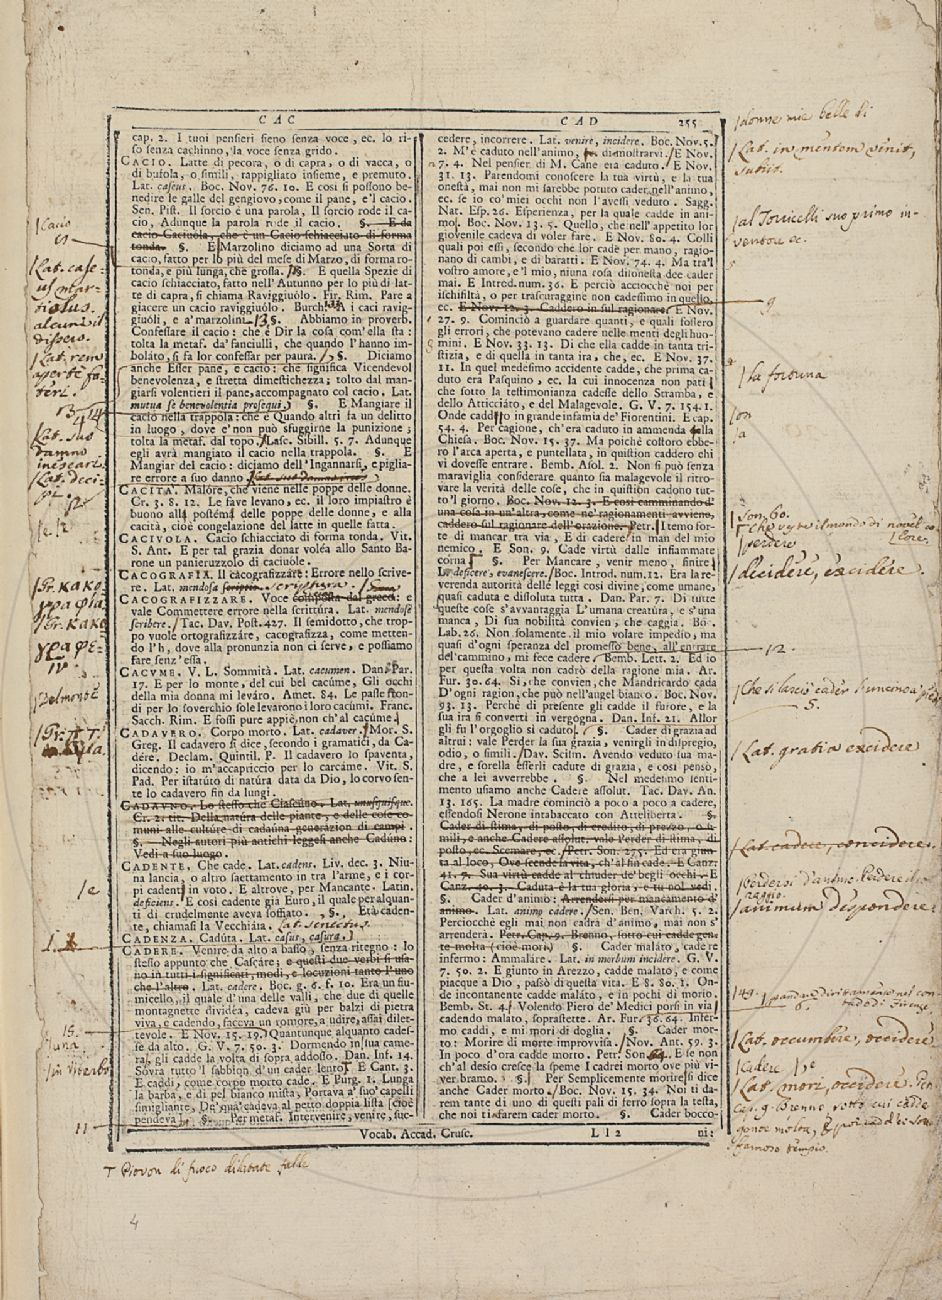 CAC
CAD 255
cap. 2. I tuoi pensieri sieno senza voce, ec. lo ri-
so senza cachinno, la voce senza grido.
CACIO. Latte di pecora, o di capra, o di vacca, o
di bufola, o simili, rappigliato insieme, e premuto.
Lat. caseus. Boc. Nov. 76. 10. E così si possono be-
nedire le galle del gengiovo, come il pane, e'l cacio.
Sen. Pist. Il sorcio è una parola, Il sorcio rode il ca-
cio, Adunque la parola rode il cacio. §. E da
cacio Caciuola, che è un Cacio schiacciato di forma
tonda. §. E Marzolino diciamo ad una Sorta di
cacio, fatto per lo più del mese di Marzo, di forma ro-
tonda, e più lunga, che grossa. §. E quella Spezie di
cacio schiacciato, fatto nell'Autunno per lo più di lat-
te di capra, si chiama Raviggiuólo. Fir. Rim. Pare a
giacere un cacio raviggiuolo. Burch. A i caci ravig-
giuoli, e a'marzolin. §. Abbiamo in proverb.
Confessare il cacio: che è Dir la cosa com'ella sta:
tolta la metaf. da'fanciulli, che quando l'hanno im-
boláto, si fa lor confessar per paura. §. Diciamo
anche Esser pane, e cacio: che significa Vicendevol
benevolenza, e stretta dimestichezza; tolto dal man-
giarsi volentieri il pane, accompagnato col cacio. Lat.
mutua se benevolentia prosequi. §. E Mangiare il
cacio nella trappola: che è Quando altri fa un delitto
in luogo, dove e'non può sfuggirne la punizione;
tolta la metaf. dal topo. Lasc. Sibill. 5. 7. Adunque
egli avrà mangiato il cacio nella trappola. §. E
Mangiar del cacio: diciamo dell'Ingannarsi, e pigliar-
re errore a suo danno
CACITÀ. Malore, che viene nelle poppe delle donne.
Cr. 3. 8. 12. Le fave levano, ec. il loro impiastro è
buono alla postema delle poppe delle donne, e alla
cacità, cioè congelazione del latte in quelle fatta.
CACIVOLA. Cacio schiacciato di forma tonda. Vit.
S. Ant. E per tal grazia donar voléa allo Santo Ba-
rone un panieruzzolo di caciuole.
CACOGRAFIA. Il cacografizzare: Errore nello scrive-
re. Lat. mendosa
CACOGRAFIZZARE. Voce composta dal greco: e
vale Commettere errore nella scrittura. Lat. mendosè
scribere. Tac. Dav. Post. 427. Il semidotto, che trop-
po vuole ortografizzáre, cacografizza, come metten-
do l'h, dove alla pronunzia non ci serve, e possiamo
fare senz'essa.
CACUME. V. L. Sommità. Lat. cacumen. Dan. Par.
17. E per lo monte, del cui bel cacúme, Gli occhi
della mia donna mi leváro. Amet. 84. Le paste fron-
di per lo soverchio sole levarono i loro cacúmi. Franc.
Sacch. Rim. E fossi pure appiè, non ch'al cacúme.
CADAVERO. Corpo morto. Lat. cadaver. Mor. S.
Greg. Il cadavero si dice, secondo i gramatici, da Ca-
dére. Declam. Quintil. P. Il cadavero lo spaventa,
dicendo: io m'accapriccio per lo carcáme. Vit. S.
Pad. Per istatúto di natúra data da Dio, lo corvo sen-
te lo cadavero fin da lungi.
CADAUNO. Lo stesso che Ciascuno. Lat. unusquisque.
Cr. 2. tit. Della natúra delle piante, e delle cose co-
muni alle cultúre di cadaúna generazion di campi.
§. Negli autori più antichi leggesi anche Cadúno:
Vedi a suo luogo.
CADENTE. Che cade. Lat. cadens. Liv. dec. 3. Niu-
na lancia, o altro saettamento in tra l'arme, e i cor-
pi cadenti in voto. E altrove, per Mancante. Latin.
deficiens. E così cadente già Euro, il quale per alquan-
ti dì crudelmente aveva soffiato. §. Età caden-
te, chiamasi la Vecchiaia. Lat. senectus.
CADENZA. Cadúta. Lat. casus, casura.
CADERE. Venire da alto a basso, senza ritegno: lo
stesso appunto che Cascáre; e questi due verbi si usa-
no in tutti i significati, modi, e locuzioni tanto l'uno
che l'altro. Lat. cadere. Boc. g. 6. f. 10. Era un fiu-
micello, il quale d'una delle valli, che due di quelle
montagnette dividéa, cadeva giù per balzi di pietra
viva, e cadendo, faceva un romore, a udire, assai dilet-
tevole. E Nov. 15. 19. Quantunque alquanto cades-
se da alto. G. V. 7. 50. 3. Dormendo in sua came-
ra, gli cadde la volta di sopra addosso. Dan. Inf. 14.
Sovra tutto'l sabbion d'un cader lento. E Cant. 3.
E caddi, come corpo morto cade. E Purg. 1. Lunga
la barba, e di pel bianco mista, Portava a' suo'capelli
simigliante, De'qua'cadeva al petto doppia lista (cioè
pendeva) §. Per metaf. Intervenire, venire, suc-
cedere, incorrere. Lat. venire, incidere. Boc. Nov. 5.
2. M'è caduto nell'animo, dimostrarvi. E Nov.
7. 4. Nel pensier di M. Cane era caduto. E Nov.
31. 13. Parendomi conoscere la tua virtù, e la tua
onestà, mai non mi sarebbe potuto cader nell'animo,
ec. se io co'miei occhi non l'avessi veduto. Sagg.
Nat. Esp. 26. Esperienza, per la quale cadde in ani-
mo. Boc. Nov. 13. 5. Quello, che nell'appetito lor
giovenile cadeva di voler fare. E Nov. 80. 4. Colli
quali poi essi, secondo che lor cade per mano, ragio-
nano di cambi, e di baratti. E Nov. 74. 4. Ma tra'l
vostro amore, e'l mio, niuna cosa disonesta dee cader
mai. E Introd. num. 36. E perciò acciocchè noi per
ischifiltà, o per trascuraggine non cadessimo in quello,
ec. E Nov. 12. 3. Caddero in sul ragionare. E Nov.
27. 9. Cominciò a guardare quanti, e quali fossero
gli errori, che potevano cadere nelle menti degli huo-
mini. E Nov. 33. 13. Di che ella cadde in tanta tri-
stizia, e di quella in tanta ira, che, ec. E Nov. 37.
11. In quel medesimo accidente cadde, che prima ca-
duto era Pasquino, ec. la cui innocenza non patì
che sotto la testimonianza cadesse dello Stramba, e
dello Atticciáto, e del Malagevole. G. V. 7. 154. 1.
Onde cadde in grande infamia de' Fiorentini. E cap.
54. 4. Per cagione, ch'era caduto in ammenda alla
Chiesa. Boc. Nov. 15. 37. Ma poichè costoro ebbe-
ro l'arca aperta, e puntellata, in quistion caddero chi
vi dovesse entrare. Bemb. Asol. 2. Non si può senza
maraviglia considerare quanto sia malagevole il ritrova-
re la verità delle cose, che in quistion cadono tut-
to'l giorno. Boc. Nov. 12. 3. E così camminando d'
una cosa in un'altra, come ne' ragionamenti avviene,
caddero sul ragionare dell'orazione. Petr. I temo for-
te di mancar tra via, E di cadere in man del mio
nemico. E Son. 9. Cade virtù dalle infiammate
corna. §. Per Mancare, venir meno, finire
Lat. deficere, evanescere. Boc. Introd. num. 12. Era la re-
verenda autorità delle leggi così divine, come umane,
quasi caduta e dissoluta tutta. Dan. Par. 7. Di tutte
queste cose s'avvantaggia L'umana creatúra, e s'una
manca, Di sua nobiltà convien, che caggia. Boc.
Lab. 26. Non solamente il mio volare impedío, ma
quasi d'ogni speranza del promesso bene, all'entrare
del cammino, mi fece cadere. Bemb. Lett. 2. Ed io
per questa volta non cadrò della ragione mia. Ar.
Fur. 30. 64. Sì, che convien, che Mandricardo cada
D'ogni ragion, che può nell'angel bianco. Boc. Nov.
93. 13. Perchè di presente gli cadde il furore, e la
sua ira si convertì in vergogna. Dan. Inf. 21. Allor
gli fu l'orgoglio sì caduto. §. Cader di grazia ad
altrui: vale Perder la sua grazia, venirgli in dispregio,
odio, o simili. Dav. Scism. Avendo veduto sua ma-
dre, e sorella esserli cadute di grazia, e così penso,
che a lei avverrebbe. §. Nel medesimo senti-
mento usiamo anche Cadere assolut. Tac. Dav. An.
13. 165. La madre cominciò a poco a poco a cadere,
essendosi Nerone intabaccato con Atteliberta. §.
Cader di stima, di posto, di credito, di prezzo, o si-
mili, e anche Cadere assolut. vale Perder di stima, di
posto, ec. Scemare, ec. Petr. Son. 275. Ed era giun-
ta al loco, Ove scende la vita, ch'al fin cade. E Canz.
41. 7. Sua virtù cadde al chiuder de'begli occhi. E
Canz. 40. 3. Caduta è la tua gloria, e tu nol vedi.
§. Cader d'animo: Arrendersi per mancamento d'
animo. Lat. animo cadere. Sen. Ben. Varch. 5. 2.
Perciocchè egli mai non cadrà d'animo, mai non s'
arrenderà. Petr. Cap. 9. Brenno, sotto cui cadde gen-
te molta (cioè morì) §. Cader maláto, cadere
infermo: Ammaláre. Lat. in morbum incidere. G. V.
7. 50. 2. E giunto in Arezzo, cadde malato, e come
piacque a Dio, passò di questa vita. E 8. 80. 1. On-
de incontanente cadde maláto, e in pochi dì morío.
Bemb. St. 4. Volendo Piero de' Medici porsi in via
cadendo malato, soprastette. Ar. Fur. 36. 64. Infer-
mo caddi, e mi morì di doglia. §. Cader mor-
to: Morire di morte improvvisa. Nov. Ant. 59. 3.
In poco d'ora cadde morto. Petr. Son. 64. E se non
ch'al desio cresce la speme I cadrei morto ove più vi-
ver bramo. §. Per Semplicemente morire si dice
anche Cader morto. Boc. Nov. 15. 34. Noi ti da-
rem tante di uno di questi pali di ferro sopra la testa,
che noi ti farem cader morto. §. Cader bocco-
Vocab. Accad. Crusc. L l 2 ni:
Cacio
Lat. case-
us mar-
tiolus
Lat. rem
aperte fa-
teri.
Lat. suo
damno
inescari.
Lat. deci-
pi.
Gr. κακο-
γραφία
Gr. κακο
γραφε-
ῖν
Belmonte
in Viterbo
11
donne mie belle di
Lat. in mentem venit,
subit.
al Torricelli suo primo in-
ventore ec.
9
la fortuna
son. 60.
perdere
decidere, excidere
12.
5.
Lat. gratia excidere
Lat. cadere, concidere.
animum despondere
Lat. occumbere, occidere
Cadere
Lat. mori, occidere. Petr.
cap. 9. Brenno, sotto cui cadde
gente molta, E poi cadd'ei sotto
famoso tempio.
T Piovon di fuoco dilatate falde
4